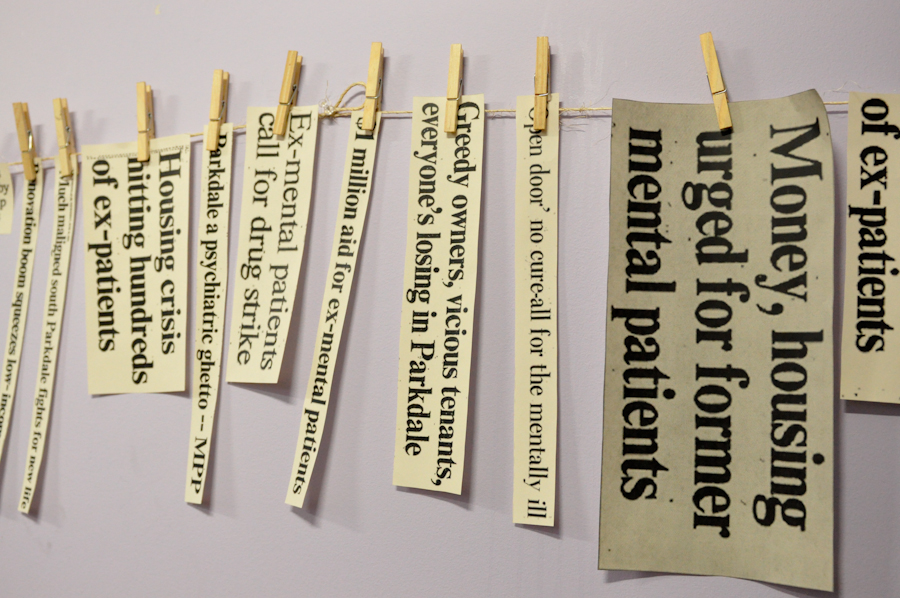 novation boom squeezes low-incom
Much maligned south Parkdale fights for new life
Housing crisis
hitting hundreds
of ex-patients
Parkdale a psychiatric ghetto -- MPP
Ex-mental patients
call for drug strike
$1 million aid for ex-mental patients
Greedy owners, vicious tenants,
everyone's losing in Parkdale
Open door' no cure-all for the mentally ill
Money, housing
urged for former
mental patients
of ex-patients